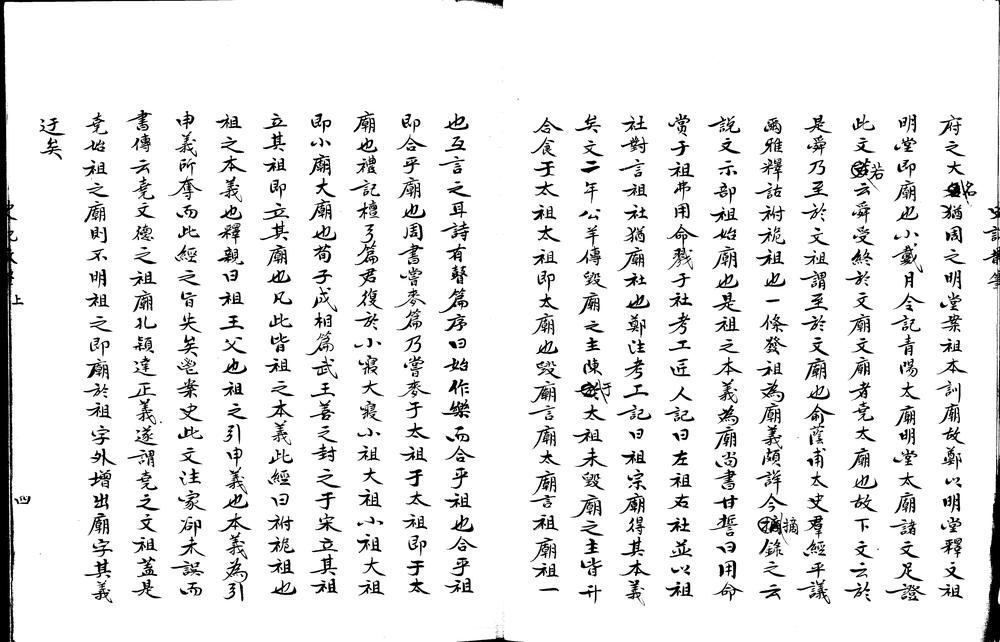 府之大名猶周之明堂案祖本訓廟故鄭以明堂釋文祖
明堂即廟也小戴月令記青陽太廟明堂太廟諸文足證
此文若云舜受終於文廟文廟者堯太廟也故下文云於
是舜乃至於文祖謂至於文廟也俞蔭甫太史群經平議
爾雅釋詁祔祪祖也一條發祖為廟義頗詳今摘錄之云
說文示部祖始廟也是祖之本義為廟尚書甘誓曰用命
賞于祖弗用命戮于社考工匠人記曰左祖右社並以祖
社對言祖社猶廟社也鄭注考工記曰祖宗廟得其本義
矣文二年公羊傳毀廟之主陳于大祖未毀廟之主皆升
合食于太祖太祖即太廟也毀廟言廟太廟言祖廟祖一
也互言之耳詩有瞽篇序曰始作樂而合乎祖也合乎祖
即合乎廟也周書嘗麥篇乃嘗麥于太祖于太祖即于太
廟也禮記檀弓篇君復於小寢大寢小祖大祖小祖大祖
即小廟大廟也荀子成相篇武王善之封之于宋立其祖
立其祖即立其廟也凡此皆祖之本義此經曰祔祪祖也
祖之本義也釋親曰祖王父也祖之引申義也本義為引
申義所奪而此經之旨失矣鬯案史此文注家卻未誤而
書傳云堯文德之祖廟孔穎達正義遂謂堯之文祖蓋是
堯始祖之廟則不明祖之即廟於祖字外增出廟字其義
迂矣
上
四